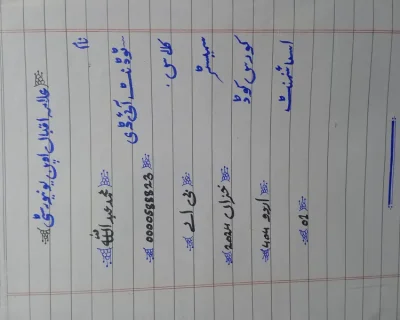 علامہ اقبال اوپن یونیورسٹی
نام محمد عبداللہ
سٹوڈنٹ آئی ڈی 0000588823
کلاس بی اے
سمیسٹر خزاں 2024
کورس کوڈ اردو 404
اسائنمنٹ 01